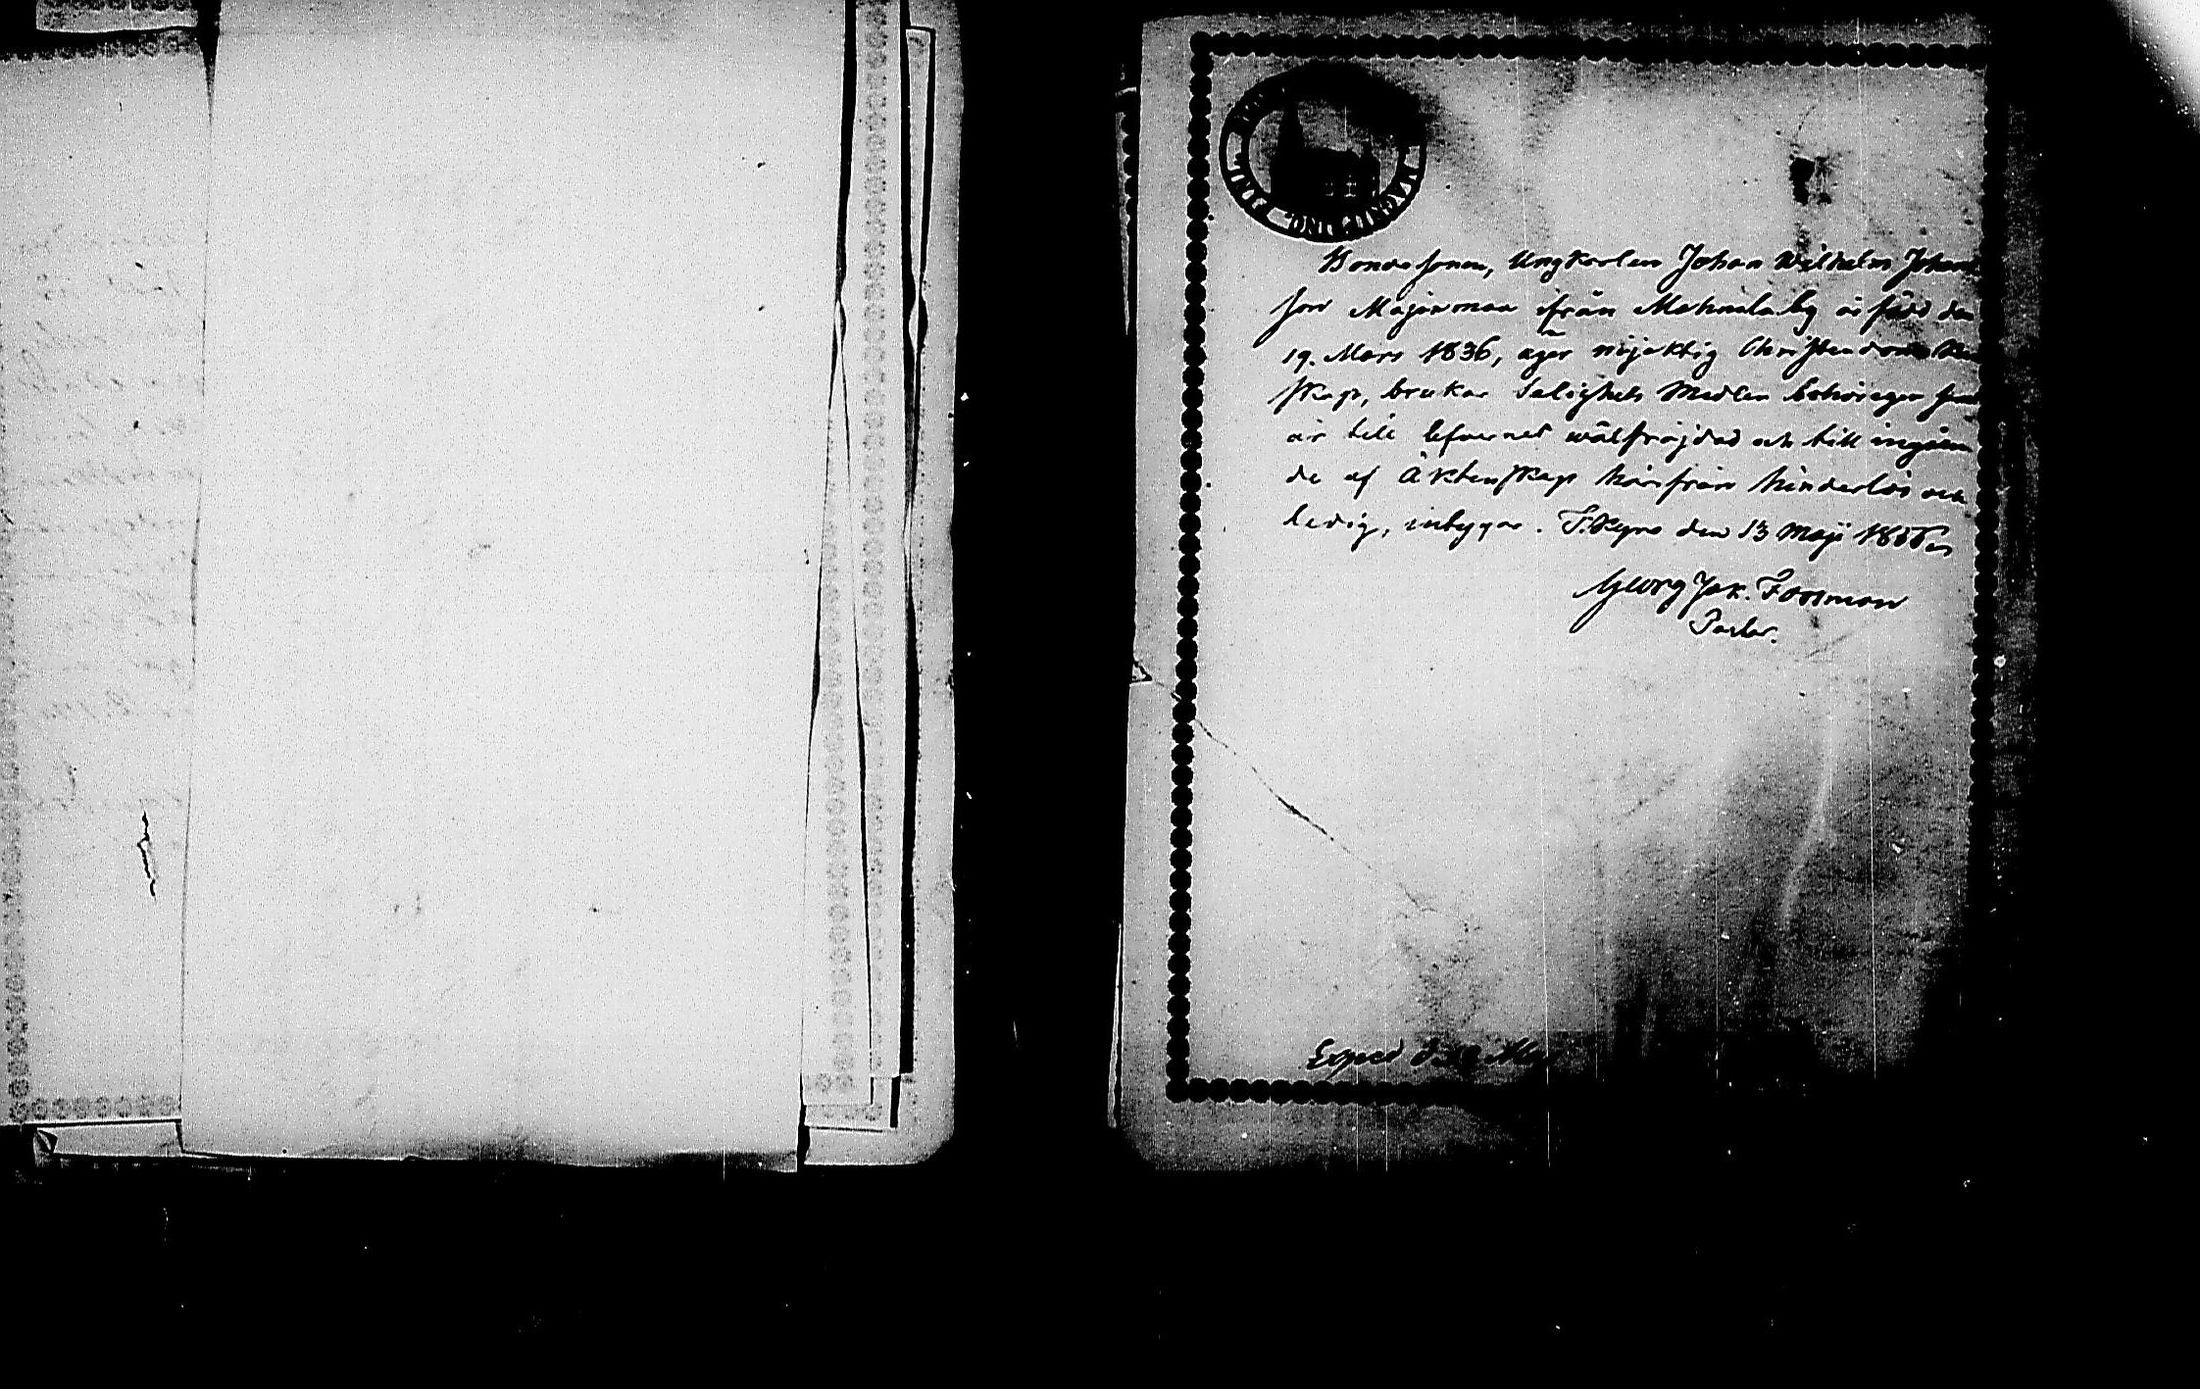 Bondesonen, Ungkarlen Johan Wilhelm Johans
son Majinmaa ifrån Mahnala by är född den
19. Mars 1836, äger nöjaktig Christendoms Kun
skap, brukar Salighets Medlen behörigen samt
är till lefvernet välfräjdad och till ingåen
de af Äktenskap härifrån hinderlös och
ledig, intygar. T.Kyro den 13 Maji 1866
Georg Jak. Forsman
Pastor.
Exped